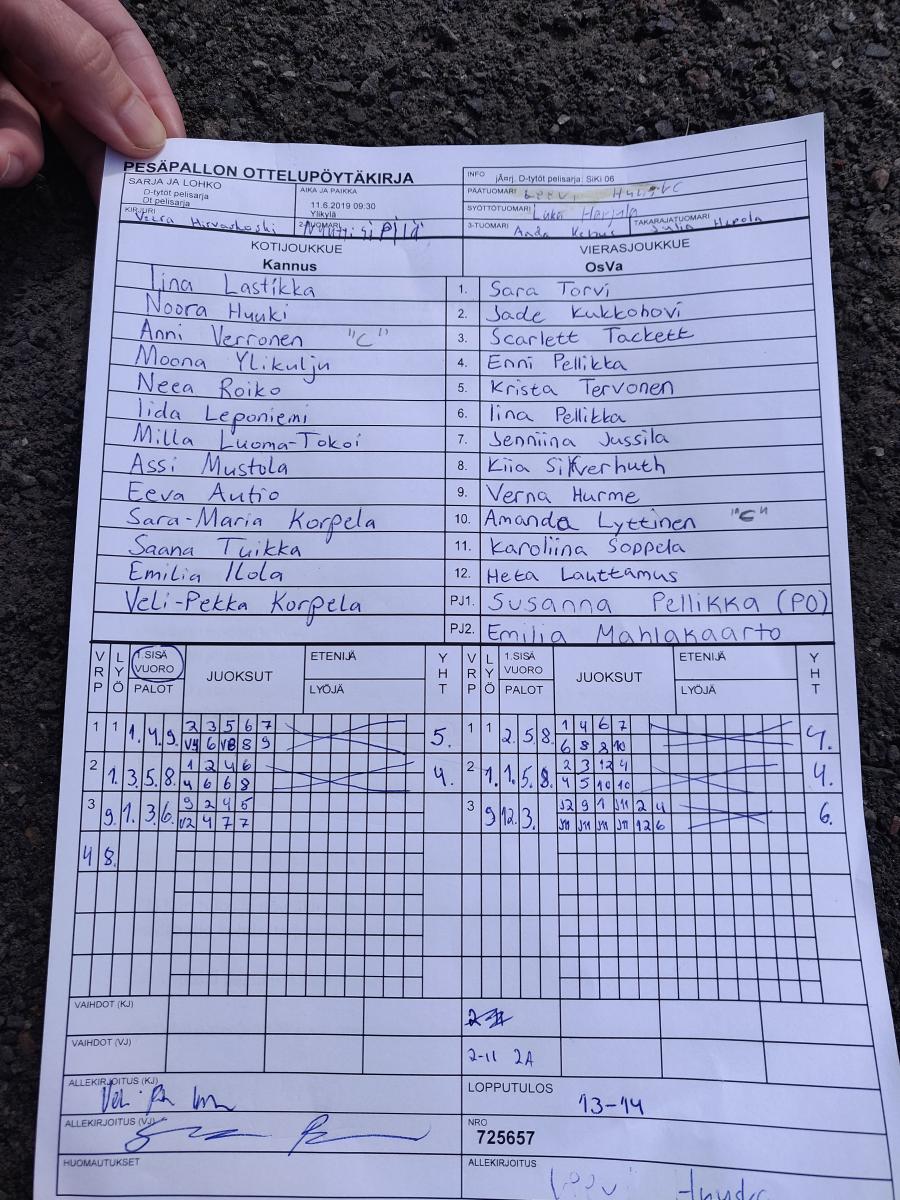 PESÄPALLON OTTELUPÖYTÄKIRJA
INFO jÄärj. D-tytöt pelisarja: SiKi 06
SARJA JA LOHKO
D-tytöt pelisarja
Dt pelisarja
AIKA JA PAIKKA
11.6.2019 09:30
Ylikylä
PÄÄTUOMARI
SYÖTTÖTUOMARI
KIRJURI Veera Hirvaskoski
2-TUOMARI
3-TUOMARI
TAKARAJATUOMARI
KOTIJOUKKUE VIERASJOUKKUE
Kannus OsVa
Iina Lastikka 1. Sara Torvi
Noora Huuki 2. Jade Kukkohovi
Anni Verronen "C" 3. Scarlett Tackett
Moona Ylikulju 4. Enni Pellikka
Neea Roiko 5. Krista Tervonen
Iida Leponiemi 6. Iina Pellikka
Milla Luoma-Tokoi 7. Jenniina Jussila
Assi Mustola 8. Kiia Silfverhuth
Eeva Autio 9. Verna Hurme
Sara-Maria Korpela 10. Amanda Lyttinen "C"
Saana Tuikka 11. Karoliina Soppela
Emilia Ilola 12. Heta Lauttamus
Veli-Pekka Korpela PJ1. Susanna Pellikka (PO)
PJ2. Emilia Mahlakaarto
VRP LYÖ 1.SISÄ VUORO PALOT JUOKSUT ETENIJÄ LYÖJÄ YHT VRP LYÖ 1.SISÄ VUORO PALOT JUOKSUT ETENIJÄ LYÖJÄ YHT
1 1 1. 4. 9. 2 3 5 6 7 5. 1 1 2. 5. 8. 1 4 6 7 4.
6 8 9 6 8 8 10
2 1. 3. 5. 8. 1 2 4 6 4. 2 1. 1. 5. 8. 2 3 12 4 4.
4 6 6 8 4 5 10 10
3 9. 1. 3. 6. 9 2 4 5 3 9 12. 3. J2 9 1 J11 2 4 6.
V2 4 7 7 J11 J11 J11 J11 12 6
4 8.
VAIHDOT (KJ)
VAIHDOT (VJ) 2-11 2A
ALLEKIRJOITUS (KJ)
LOPPUTULOS
13-14
ALLEKIRJOITUS (VJ)
NRO
725657
HUOMAUTUKSET
ALLEKIRJOITUS